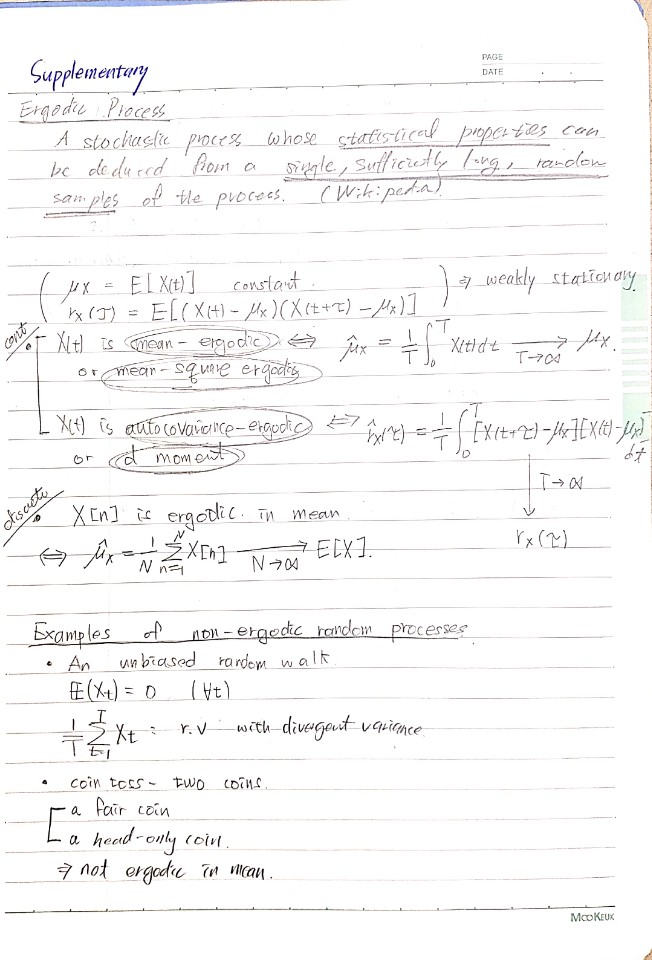 PAGE
DATE . .
Supplementary
Ergodic Process
A stochastic process whose statistical properties can
be deduced from a single, sufficiently long, random
samples of the process. (Wikipedia)
( μx = E[X(t)] constant. ) ⇒ weakly stationary
rx(τ) = E[(X(t) - μx)(X(t+τ) - μx)]
cont
• X(t) is mean-ergodic ⇔ μ̂x = 1/T ∫₀ᵀ X(t)dt → (T→∞) μx.
or mean-square ergodic
X(t) is autocovariance-ergodic ⇔ r̂x(τ) = 1/T ∫₀ᵀ [X(t+τ) - μx][X(t) - μx] dt
or d moment
↓ T→∞
rx(τ)
discrete
• X[n] is ergodic in mean
⇔ μ̂x = 1/N Σ_{n=1}^{N} X[n] → (N→∞) E[X].
Examples of non-ergodic random processes
• An unbiased random walk
E(Xt) = 0 (∀t)
1/T Σ_{t=1}^{T} Xt : r.v with divergent variance
• coin toss - two coins.
a fair coin
a head-only coin.
⇒ not ergodic in mean.
MOOKEUK